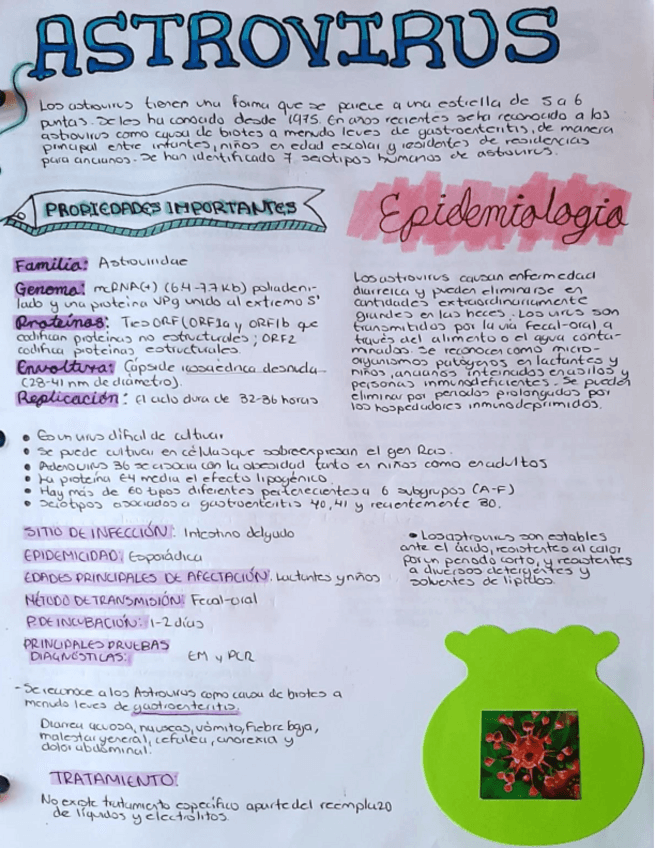 ASTROVIRUS
Los astrovirus tienen una forma que se parece a una estrella de 5 a 6
puntas. Se les ha conocido desde 1975. En años recientes se ha reconocido a los
astrovirus como causa de brotes a menudo leves de gastroenteritis, de manera
principal entre infantes, niños en edad escolar y residentes de residencias
para ancianos. Se han identificado 7 serotipos humanos de astrovirus.
PROPIEDADES IMPORTANTES
Familia: Astroviridae
Genoma: mcRNA(+) (6.4-7.7 Kb) poliadeni-
lado y una proteina VPg unido al extremo 5'
Proteínas: Tres ORF (ORF1a y ORF1b que
codifican proteinas no estructurales; ORF2
codifica proteinas estructurales.
Envoltura: Cápside icosaédrica desnuda
(28-41 nm de diámetro).
Replicación: El ciclo dura de 32-36 horas
Epidemiologia
Los astrovirus causan enfermedad
diarreica y pueden eliminarse en
cantidades extraordinariamente
grandes en las heces. Los virus son
transmitidos por la vía fecal-oral a
través del alimento o el agua conta-
minadas. Se reconocen como micro-
organismos patógenos en lactantes y
niños, ancianos internados en asilos y
personas inmunodeficientes. Se pueden
eliminar por periodos prolongados por
los hospedadores inmunodeprimidos.
• Es un virus difícil de cultivar
• Se puede cultivar en células que sobreexpresan el gen Ras.
• Adenovirus 36 se asocia con la obesidad tanto en niños como en adultos
• La proteína E4 media el efecto lipogénico.
• Hay más de 60 tipos diferentes pertenecientes a 6 subgrupos (A-F)
• Serotipos asociados a gastroenteritis 40, 41 y recientemente 30.
SITIO DE INFECCIÓN: Intestino delgado
EPIDEMICIDAD: Esporádica
EDADES PRINCIPALES DE AFECTACIÓN: Lactantes y niños
MÉTODO DE TRANSMISIÓN: Fecal-oral
P. DE INCUBACIÓN: 1-2 días
PRINCIPALES PRUEBAS
DIAGNÓSTICAS: EM y PCR
• Los astrovirus son estables
ante el ácido, resistentes al calor
por un periodo corto, y resistentes
a diversos detergentes y
solventes de lípidos.
- Se reconoce a los Astrovirus como causa de brotes a
menudo leves de gastroenteritis.
Diarrea acuosa, nauseas, vómito, fiebre baja,
malestar general, cefalea, anorexia y
dolor abdominal.
TRATAMIENTO:
No existe tratamiento específico aparte del reemplazo
de líquidos y electrólitos.